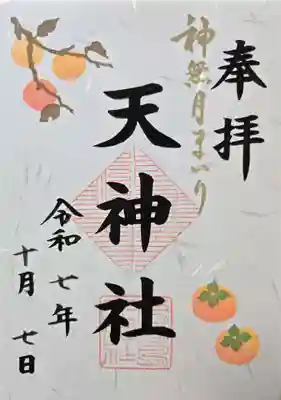 奉拝
神無月まいり
天神社
令和七年
十月七日